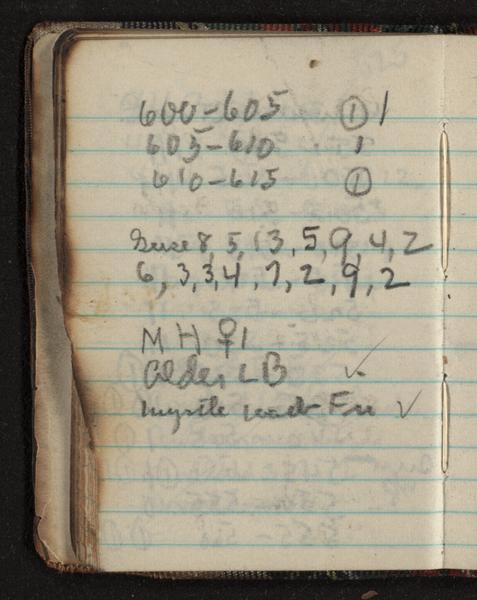 600-605 ① 1
605-610 1
610-615 ①
Geese 8, 5, 13, 5, 9, 4, 2
6, 3, 3, 4, 7, 2, 9, 2
M H ♀ 1
Alder LB ✓
myrtle ✓